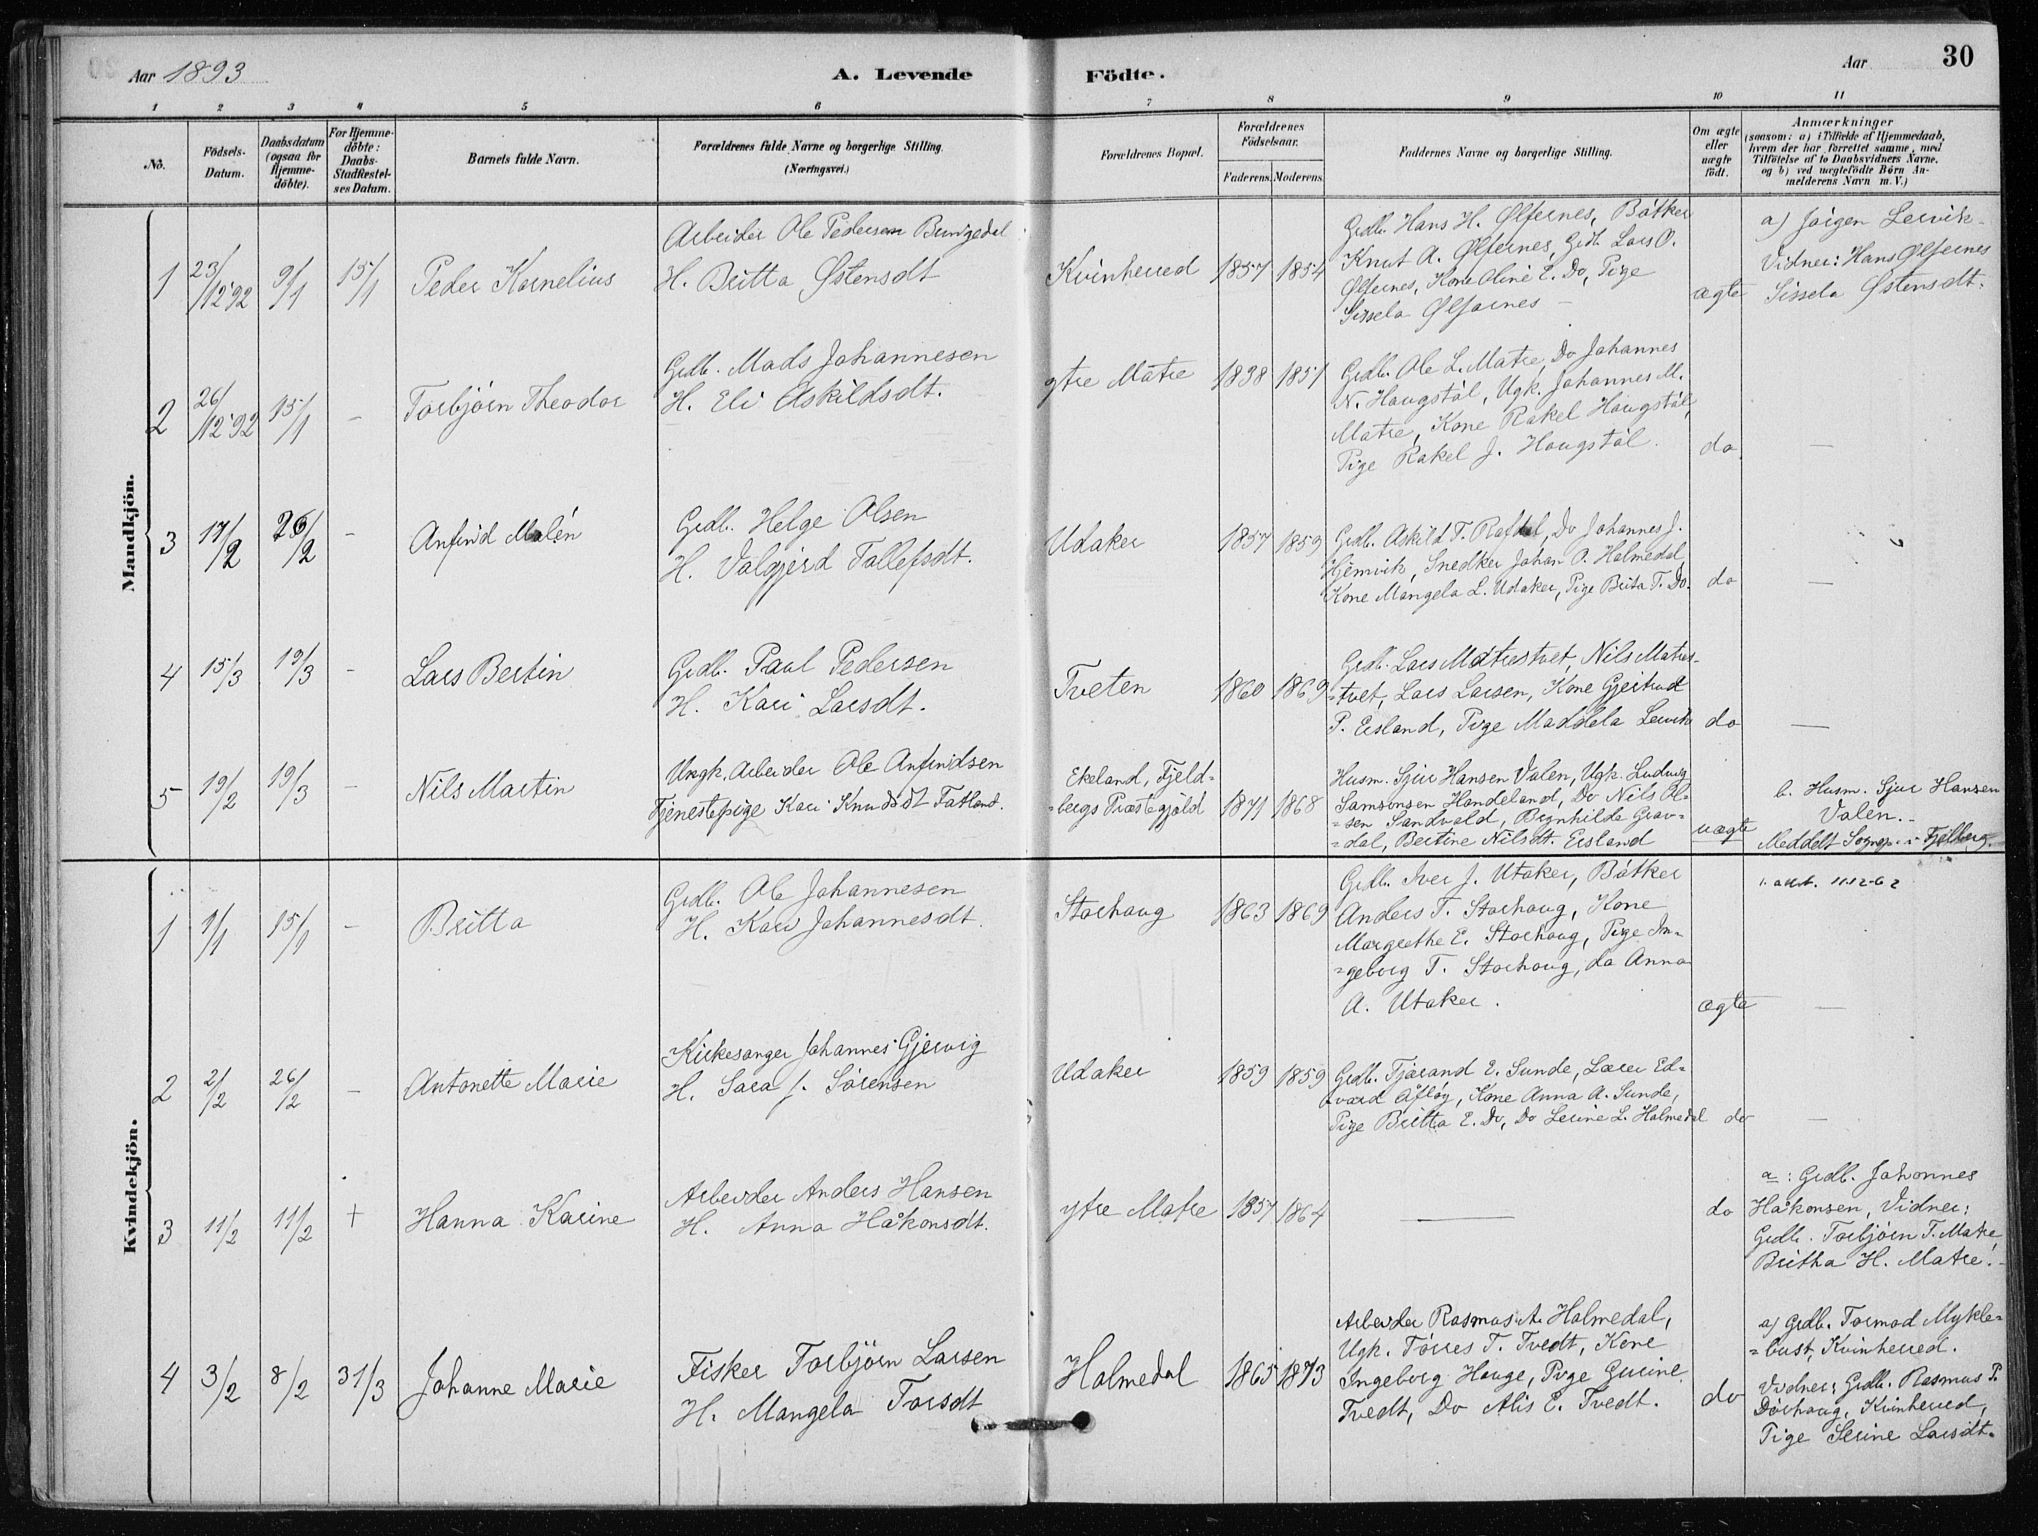 Aar 1893
A. Levende
Födte.
Aar
30
1 2 3 4 5 6 7 8 9 10 11
No.
Födsels-
Datum.
Daabsdatum
(ogsaa for
Hjemme-
döbte).
For Hjemme-
döbte:
Daabs-
Stadfæstel-
ses Datum.
Barnets fulde Navn.
Forældrenes fulde Navne og borgerlige Stilling.
(Næringsvei.)
Forældrenes Bopæl.
Forældrenes
Födselsaar.
Faderens. Moderens.
Faddernes Navne og borgerlige Stilling.
Om ægte
eller
uægte
födt.
Anmærkninger
(saasom: a) i Tilfælde af Hjemmedaab,
hvem der har forrettet samme, med
Tilföielse af to Daabsvidners Navne.
og b) ved uægtefödte Börn An-
melderens Navn m. V.)
Mandkjön.
1 23/12 92 9/1 15/1 Peder Kornelius
Arbeider Ole Pedersen
H. Britta Østensdt
Kvinherred 1857 1854
Grdb. Hans H. Ølfernes, Bötker
Knut A. Ølfernes, Grdb. Lars O.
Ølfernes, Kone Oline E. Do, Pige
Sissela Ølfernes -
ægte
a) Jörgen Lervik
Vidner: Hans Ølfernes
Sissela Østensdt.
2 26/12 92 15/1 - Torbjörn Theodor
Grdb. Mads Johannesen
H. Eli Askildsdt.
ytre Matre 1838 1851
Grdb. Ole L. Matre, Do Johannes
N. Haugstöl, Ugk. Johannes M.
Matre, Kone Rakel Haugstöl,
Pige Rakel J. Haugstöl.
do -
3 17/2 26/2 - Anfind Malén
Grdb. Helge Olsen
H. Valgjerd Tollefsdt.
Udaker 1857 1859
Grdb. Askild T. Rafdal, Do Johannes J.
Hjemvik, Snedker Johan O. Holmedal
Kone Mangela L. Udaker, Pige Brita T. Do.
do -
4 15/3 19/3 - Lars Bertin
Grdb. Paul Pedersen
H. Kari Larsdt.
Tveten 1860 1869
Grdb. Lars Matrestvet, Nils Matres-
-tvet, Lars Larsen, Kone Gjertrud
P. Eisland, Pige Maddela Lervik
do -
5 19/2 19/3 - Nils Martin
Ungk. Arbeider Ole Anfindsen
Tjenestepige Kari Knudsdt Fatland.
Ekeland, Fjeld-
-bergs Præstegjöld 1871 1868
Husm. Sjur Hansen Valen, Ugk. Ludvig
Samsonsen Handeland, Do Nils Ol-
-sen Sandvald, Brynhilde Grav-
-dal, Bertine Nilsdt. Eisland
uægte
b. Husm. Sjur Hansen
Valen.
Meddelt Sognep. i Fjelberg.
Kvindekjön.
1 9/1 15/1 - Britta
Grdb. Ole Johannesen
H. Kari Johannesdt.
Storhaug 1863 1869
Grdb. Iver J. Utaker, Bötker
Anders T. Storhaug, Kone
Margrethe E. Storhaug, Pige In-
-geborg T. Storhaug, do Anna
A. Utaker.
ægte -
1. att. 11.12-62
2 2/2 26/2 - Antonette Marie
Kirkesanger Johannes Gjervig
H. Sara f. Sörensen
Udaker 1859 1859
Grdb. Tjärand E. Sunde, Lærer Ed-
-vard Åflöy, Kone Anna A. Sunde,
Pige Britta E. Do, Do Serine L. Holmedal
do -
3 11/2 11/2 + Hanna Karine
Arbeider Anders Hansen
H. Anna Håkonsdt.
ytre Matre 1857 1864
- do
a: Grdb. Johannes
Håkonsen, Vidner:
Grdb. Torbjörn T. Matre,
Britha H. Matre.
4 3/2 8/2 31/3 Johanne Marie
Fisker Torbjörn Larsen
H. Mangela Torsdt
Holmedal 1865 1873
Arbeider Rasmus A. Holmedal,
Ugk. Törres T. Tvedt, Kone
Ingeborg Hauge, Pige Gurine
Tvedt, Do Alis E. Tvedt.
do
a) Grdb. Tormod Mykle-
-bust, Kvinherred.
Vidner: Grdb. Rasmus P.
Dörhaug, Kvinherred,
Pige Serine Larsdt.